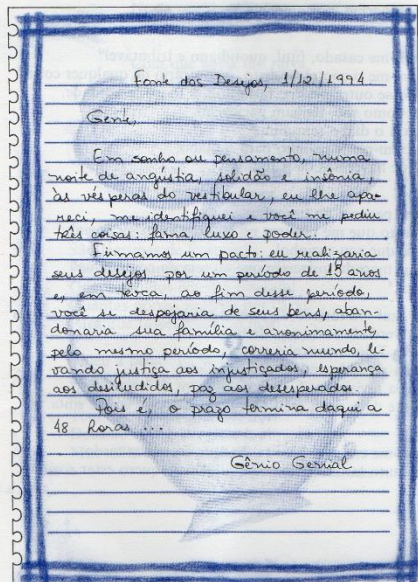 Fonte dos Desejos, 1/12/1994
Gente,
Em sonho ou pensamento, numa
noite de angústia, solidão e insônia,
às vésperas do vestibular, eu lhe apa-
reci, me identifiquei e você me pediu
três coisas: fama, luxo e poder.
Firmamos um pacto: eu realizaria
seus desejos por um período de 18 anos
e, em troca, ao fim desse período,
você se despojaria de seus bens, aban-
donaria sua família e anonimamente,
pelo mesmo período, correria mundo, le-
vando justiça aos injustiçados, esperança
aos desiludidos, paz aos desesperados.
Pois é, o prazo termina daqui a
48 horas ...
Gênio Genial